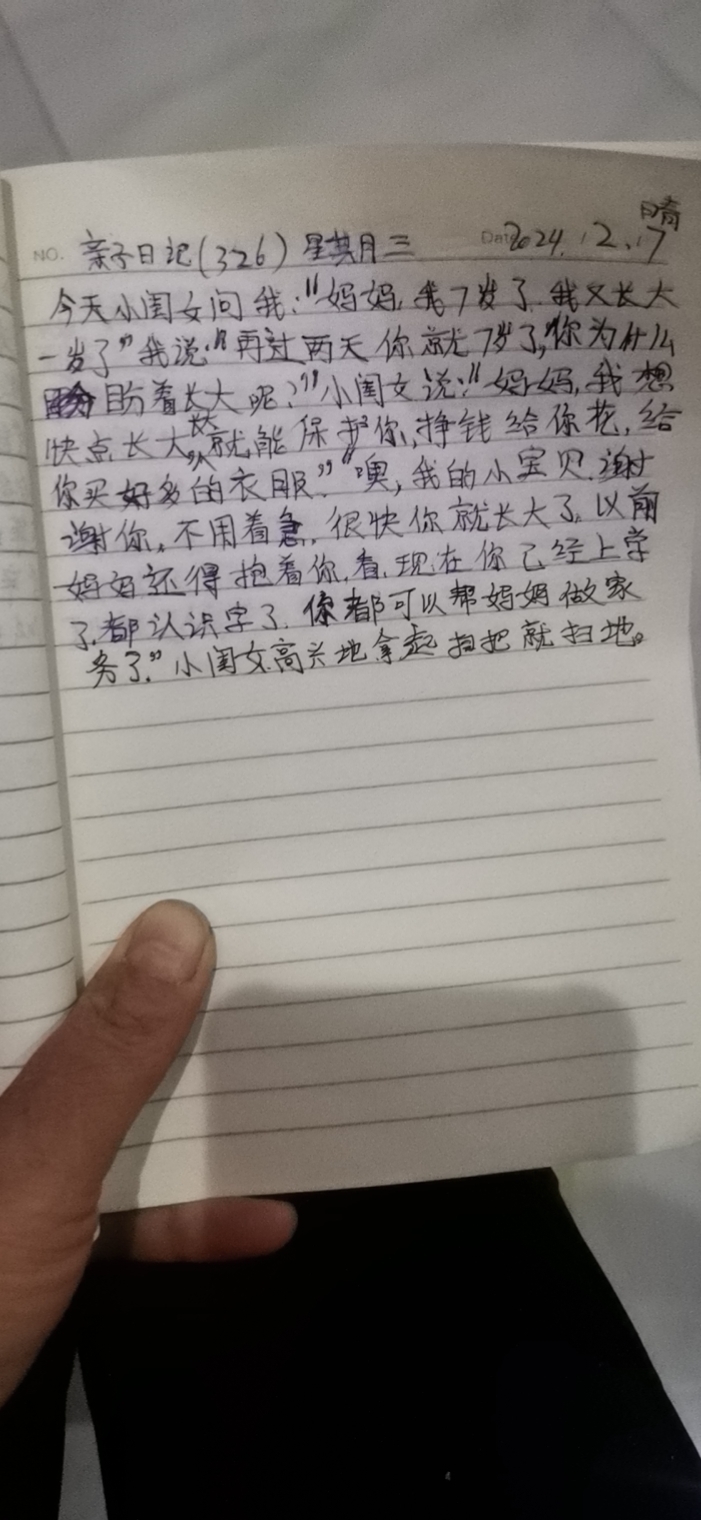 晴
NO. 亲子日记(326) 星期三 Date 2024.12.17
今天小闺女问我:"妈妈,我7岁了.我又长大
一岁了"我说:"再过两天你就7岁了,你为什么
盼着长大呢?"小闺女说:"妈妈,我想
快点长大,长大就能保护你,挣钱给你花,给
你买好多的衣服.""噢,我的小宝贝.谢
谢你。不用着急.很快你就长大了。以前
妈妈还得抱着你.看.现在你已经上学
了.都认识字了.你都可以帮妈妈做家
务了."小闺女高兴地拿起扫把就扫地。